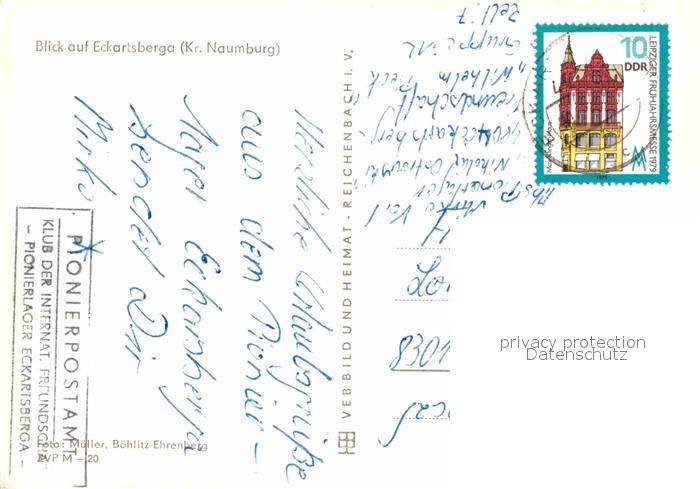 Blick auf Eckartsberga (Kr. Naumburg)
Herzliche Urlaubsgrüße
aus dem Pionier-
lager Eckartsberga
sendet Dir
Mirko
PIONIERPOSTAMT
KLUB DER INTERNAT. FREUNDSCHAFT
– PIONIERLAGER ECKARTSBERGA –
Foto: Müller, Böhlitz-Ehrenberg
VEB BILD UND HEIMAT · REICHENBACH i. V.
Abs.
Mirko
Pionierlager
"Nikolai Ostrowski"
Eckartsberg-
Freundschaft
"Wilhelm Pieck"
Gruppe
Zelt: 7
10
DDR
LEIPZIGER FRÜHJAHRSMESSE 1979
8301
privacy protection
Datenschutz